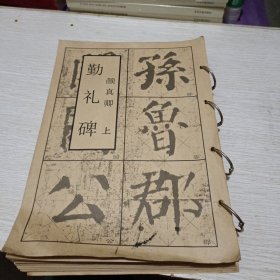 顔真卿
勤礼碑 上
孫
魯
郡
公